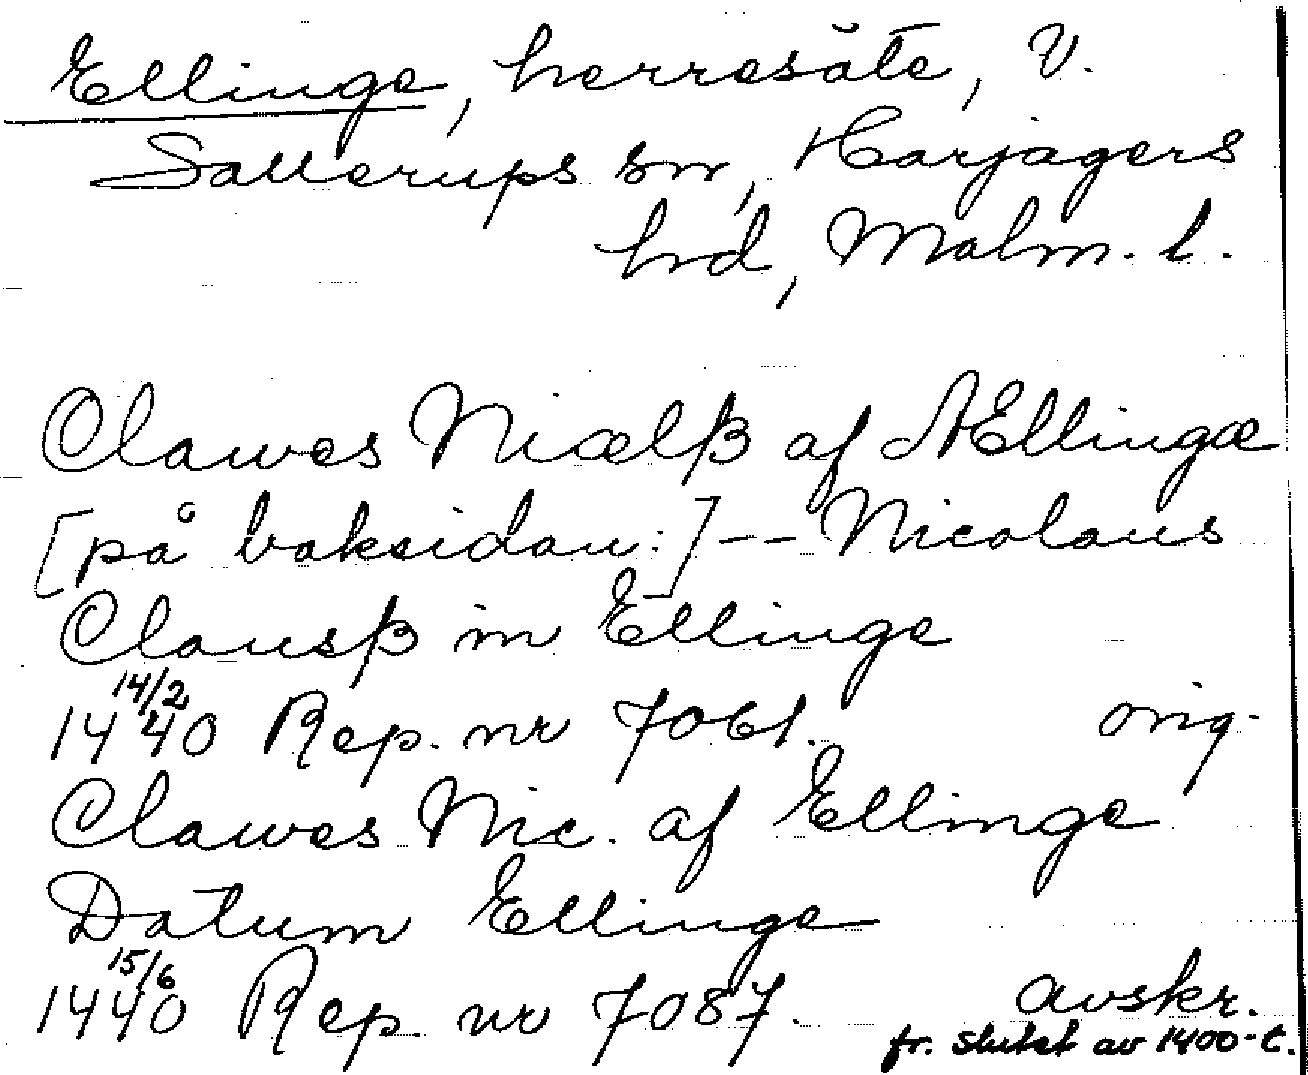 Ellinge, herresäte, V.
Sallerups sn, Harjagers
hrd, Malm. l.
Clawes Niælß af Ællingæ
[på baksidan:] -- Nicolaus
Clausß in Ellinge
14/2
1440 Rep. nr 7061. orig.
Clawes Nic. af Ellinge
Datum Ellinge
15/6
1440 Rep. nr 7087. avskr.
fr. slutet av 1400-t.